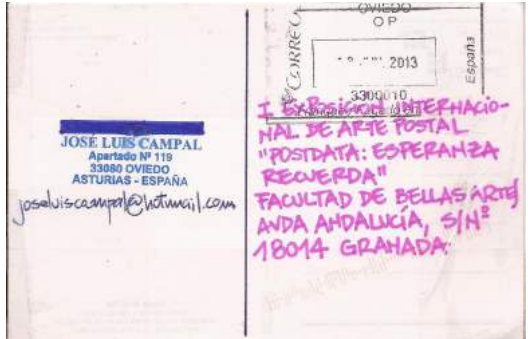 JOSÉ LUIS CAMPAL
Apartado Nº 119
33080 OVIEDO
ASTURIAS - ESPAÑA
joseluiscampal@hotmail.com
OVIEDO
O P
CORREO
2013
España
3300010
I EXPOSICIÓN INTERNACIO-
NAL DE ARTE POSTAL
"POSTDATA: ESPERANZA
RECUERDA"
FACULTAD DE BELLAS ARTES
AVDA ANDALUCÍA, S/Nº
18014 GRANADA.